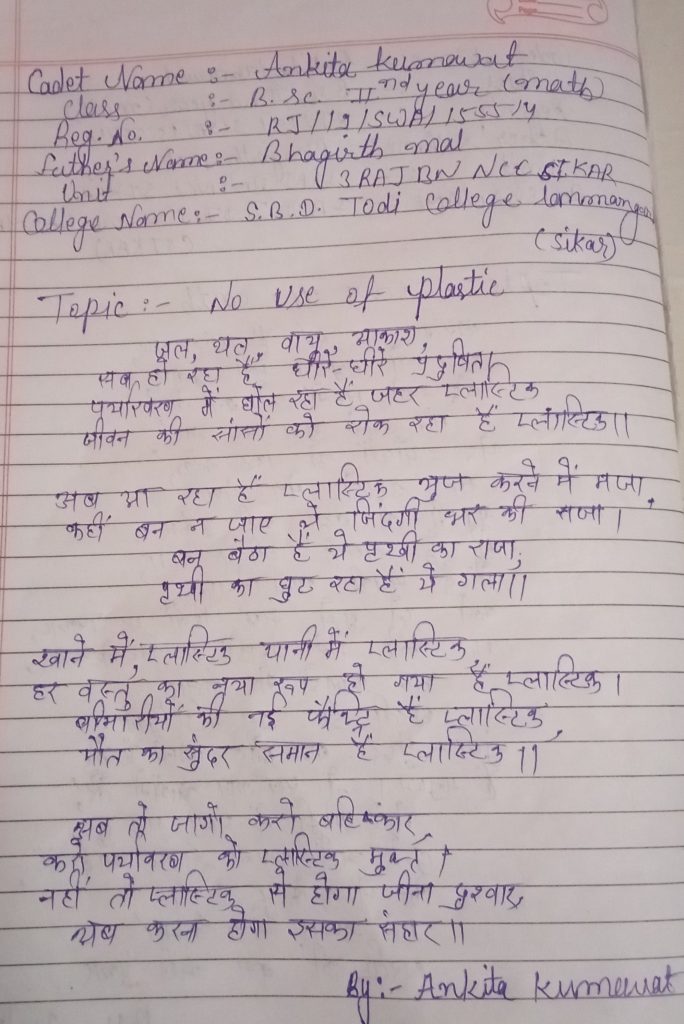 Cadet Name :- Ankita Kumawat
Class :- B. Sc. IInd year (math)
Reg. No. :- RJ/19/SWA/155514
Father's Name:- Bhagirth mal
Unit :- 3 RAJ BN NCC SIKAR
College Name:- S.B.D. Todi College
(Sikar)
Topic :- No use of plastic
जल, थल, वायु, आकाश,
सब हो रहा है, धीरे-धीरे प्रदुषित।
पर्यावरण में घोल रहा हैं जहर प्लास्टिक
जीवन की सांसों को रोक रहा हैं प्लास्टिक।।
अब आ रहा हैं प्लास्टिक युज करने में मजा,
कहीं बन न जाए ये जिंदगी भर की सजा।
बन बैठा हैं ये पृथ्वी का राजा,
पृथ्वी का घुट रहा हैं ये गला।।
खाने में, प्लास्टिक पानी में प्लास्टिक
हर वस्तु का नया रूप हो गया हैं प्लास्टिक।
बीमारीयों की नई फैक्ट्रि हैं प्लास्टिक,
मौत का सुंदर समान हैं प्लास्टिक।।
अब तो जागो करो बहिष्कार,
करो पर्यावरण को प्लास्टिक मुक्त।
नहीं तो प्लास्टिक से होगा जीना दुश्वार,
अब करना होगा इसका संहार।।
By:- Ankita Kumawat